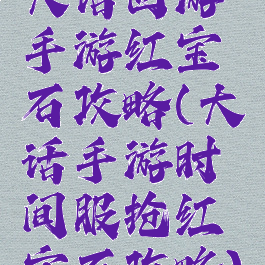 大话西游
手游红宝
石攻略(大
话手游时
间服抢红
宝石攻略)